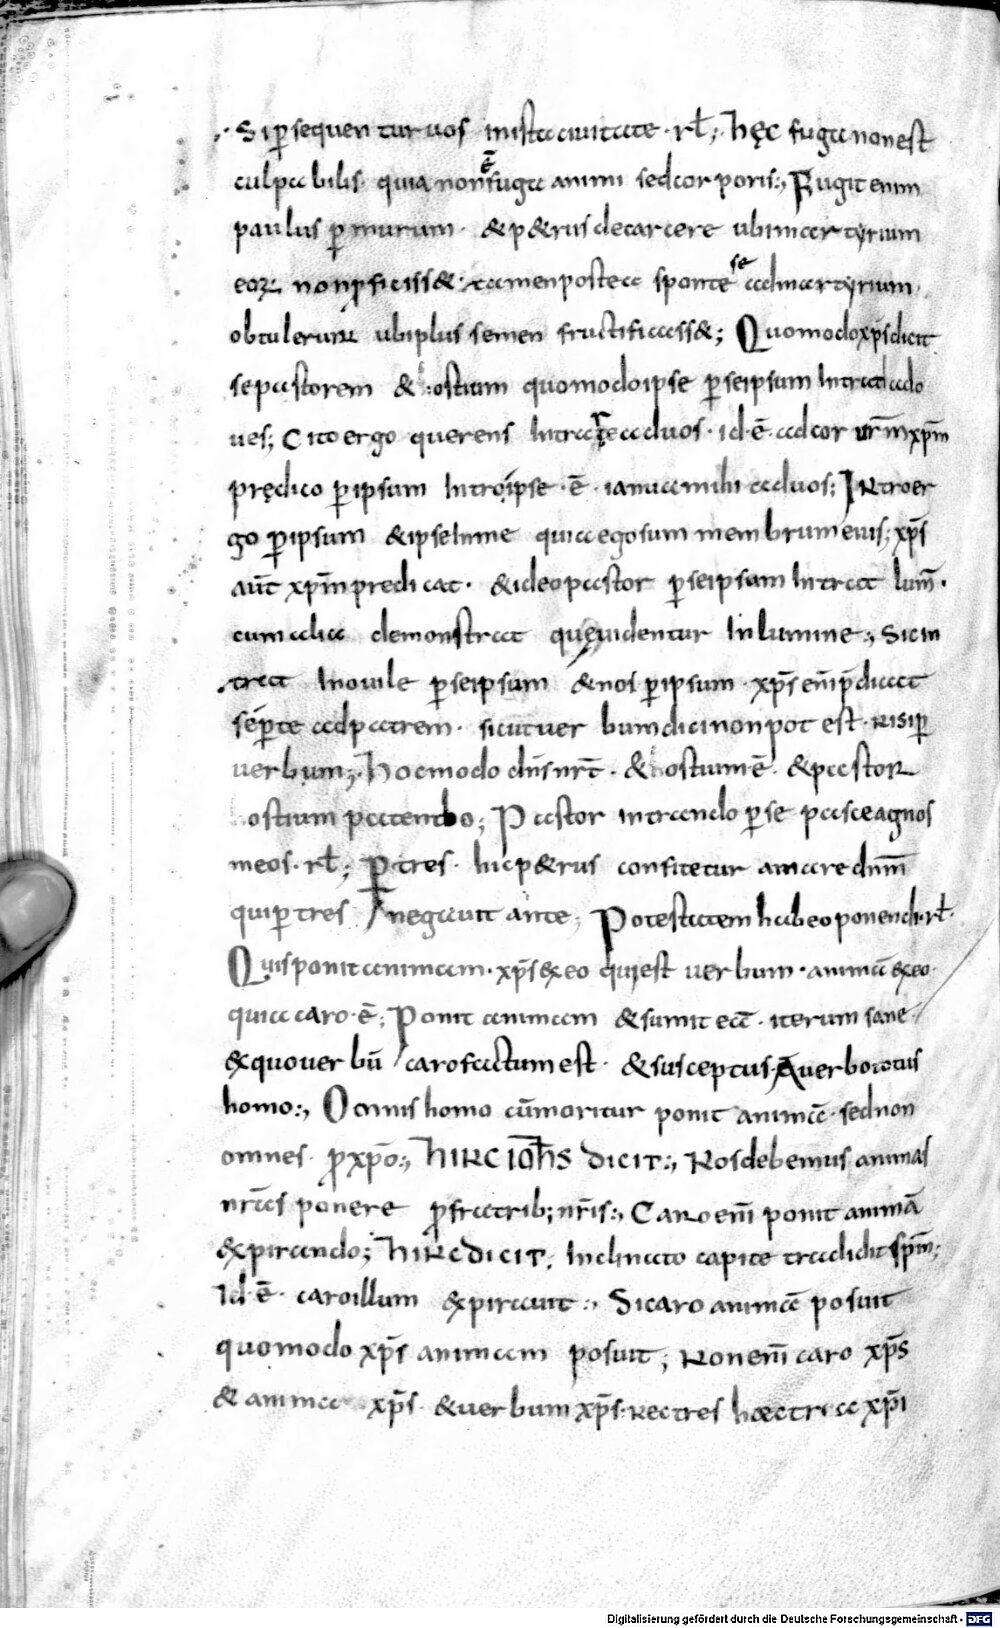 Si ꝑsequentur uos inista ciuitate · rł; hęc fuga nonest
culpabilis quia non ē fuga animi sed corporis:, Fugit enim
paulus ꝑ murum · & p&rus decarcere ubi martyrium
eoꝝ non ꝓficiss&; tamen postea sponte se admartyrium
obtulerunt ubi plus semen fructificass&; Quomodo xp̄s dicit
se pastorem & ostium quomodo ipse ꝑ seipsum Intrat ado
ues; Cito ergo querens Intrare aduos · id · ē · adcor ur̄m xp̄m
prędico ꝑ ipsum Introipse · ē · ianua mihi aduos; Intro er
go ꝑ ipsum & ipse In me quia ego sum membrum eius; xp̄s
aut̄ xp̄m predicat · & ideo pastor ꝑ seipsum Intrat lum̄ ·
cum alia demonstrat quę uidentur In lumine:, Sic in
trat In ouile ꝑ seipsum & nos ꝑ ipsum xp̄s eni̅ p̄dicat
se ꝑ te adpatrem · sicut uerbum dici non potest · nisi ꝑ
uerbum; hoc modo dn̄s nr̄t · & ostium ē · & pastor
ostium patendo; Pastor intrando ꝑ se pasce agnos
meos · rł; Ꝑ tres · hic p&rus confitetur amare dn̄m
qui ꝑ tres negauit ante; Potestatem habeo ponendi · rł ·
Quis ponit animam · xp̄s ex eo qui est uerbum · animā ex eo
quia caro · ē; Ponit animam & sumit eā · iterum sane
ex quo uerbū caro factum est · & susceptus a uerbo totus
homo:, Omnis homo cū moritur ponit animā · sed non
omnes ꝓ xp̄o:, hinc ioh̄s dicit:, Nos debemus animas
nrās ponere ꝓ fratrib; nr̄is:, Caro eni̅ ponit animā
expirando; hinc dicit; Inclinato capite tradidit sp̄m;
Id · ē · caro illum expirauit:, Si caro animā posuit
quomodo xp̄s animam posuit; Non eni̅ caro xp̄s
& anima xp̄s & uerbum xp̄s · nec tres hæc tria xp̄i
Digitalisierung gefördert durch die Deutsche Forschungsgemeinschaft - DFG